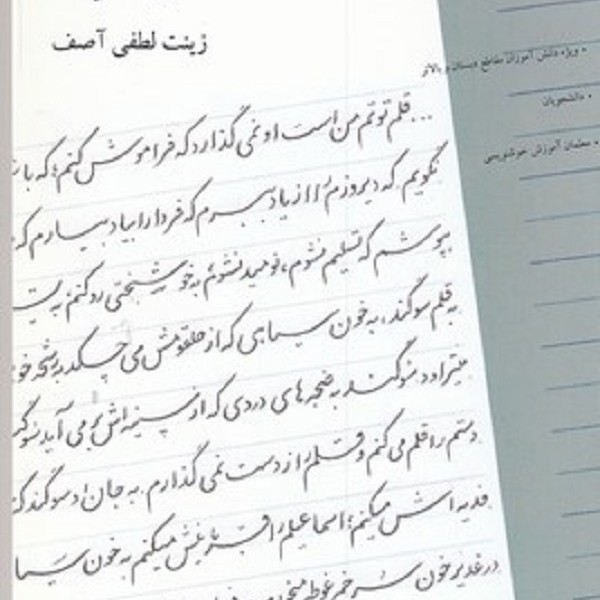 زینت لطفی آصف
• ویژه دانش آموزان مقاطع دبستان و بالاتر
• دانشجویان
• معلمان آموزش خوشنویسی
... قلم توتم من است او نمی گذارد که فراموش کنم؛ که با
نگویم که دیروزم را از یاد ببرم که فردا را بیاد بیاورم که
بپوشم که تسلیم نشوم، نومید نشوم به خوشبختی رو کنم به
به قلم سوگند، به خون سیاهی که از حلقومش می چسکد به رشحه خو
میتراود سوگند به ضجه های دردی که از سینه اش بر می آید سوگ
دستم را قلم می کنم و قلم را از دست نمی گذارم به جان او سوگند که
فدیه اش میکنم؛ اسماعیلم را قربانیش میکنم به خون سیا
در غدیر خون سر خم غوطه میخورم